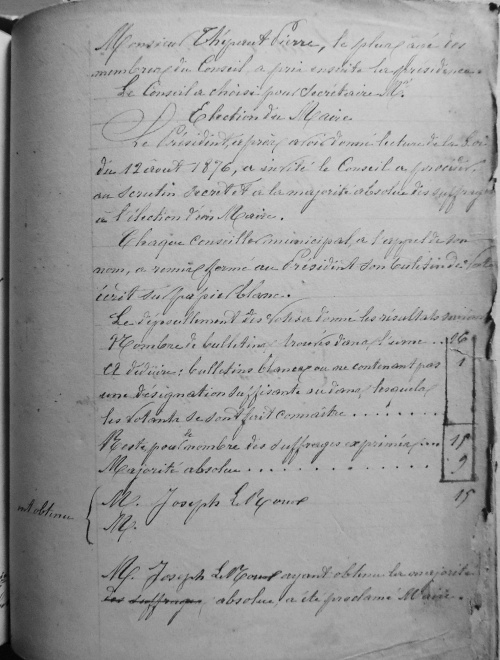 Monsieur Thépaut Pierre, le plus âgé des
membres du Conseil, a pris ensuite la présidence.
Le Conseil a choisi pour Secrétaire M.
Election du Maire
Le Président, après avoir donné lecture de la Loi
du 12 août 1876, a invité le Conseil à procéder
au scrutin secret et à la majorité absolue des suffrages
à l'élection d'un Maire.
Chaque conseiller municipal, à l'appel de son
nom, a remis fermé au Président son bulletin de vote
écrit sur papier blanc.
Le dépouillement des votes a donné les résultats suivants
Nombre de bulletins trouvés dans l'urne .. 16
A déduire : bulletins blancs ou ne contenant pas 1
une désignation suffisante ou dans lesquels
les votants se sont fait connaître . . . . . . .
Reste pour le nombre des suffrages exprimés 15
Majorité absolue . . . . . . . . . . 9
ont obtenu { M. Joseph Le Roux 15
M.
M. Joseph Le Roux ayant obtenu la majorité
des suffrages, absolue, a été proclamé Maire.